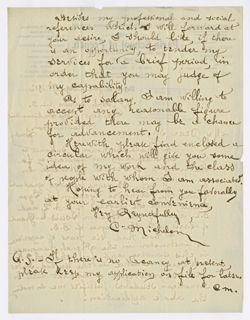 Besides my professional and social
references which I will forward at
your desire, I should like if there
is an opportunity to tender my
services for a brief period in
order that you may judge of
my capability.
As to salary, I am willing to
accept any reasonable figure
provided there may be a chance
for advancement.
Herewith please find enclosed a
circular which will give you some
idea of my work, and the class
of people with whom I am associated.
Hoping to hear from you favorably
at your earliest convenience
Very Respectfully
C.
P.S. - If there is no vacancy at present
please keep my application on file for later.
C.M.